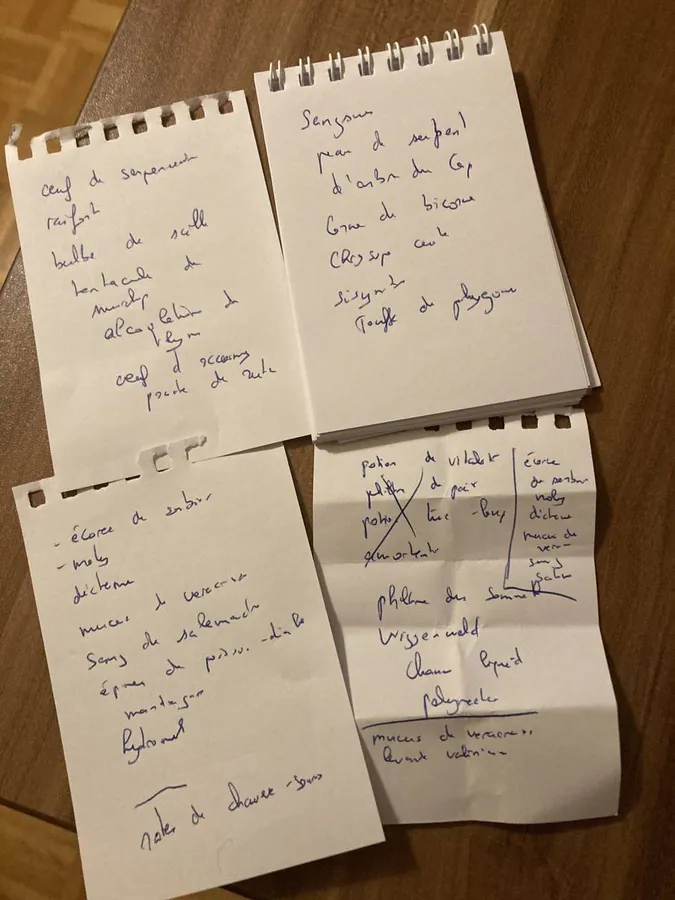 œuf de serpencendre
raifort
bulbe de scille
tentacule de
murlap
de
thym
œuf d'occamy
poudre de
Sangsues
peau de serpent
d'arbre du Cap
Corne de bicorne
Chrysope
sisymbre
Touffe de polygonum
- écorce de sorbier
- moly
dictame
mucus de veracrasse
Sang de salamandre
épines de poisson-diable
mandragore
hydromel
rates de chauve-souris
potion de vitalité
philtre de paix
potion tue-loup
amortentia
écorce
de sorbier
moly
dictame
mucus de
vera
sang
salam
philtre du sommeil
Wiggenweld
Chance liquide
polynectar
mucus de veracrasse
lavande valériane